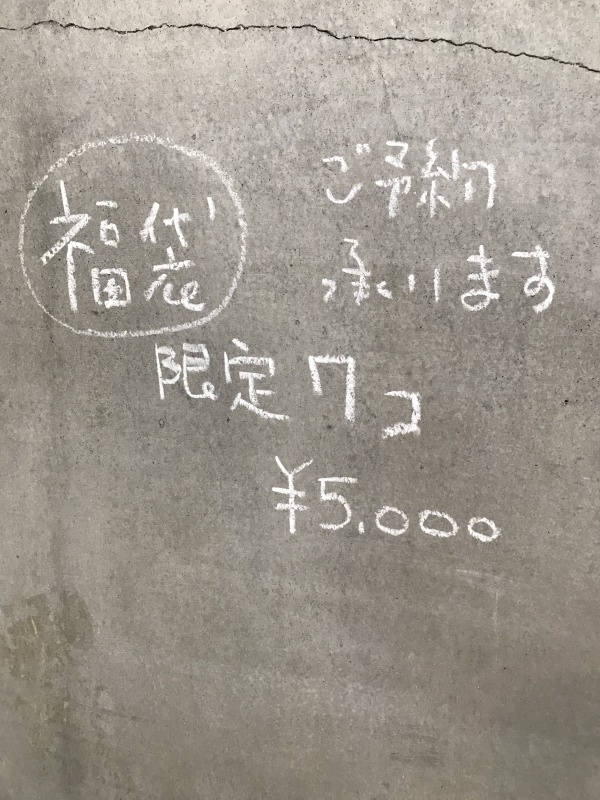 福袋
ご予約
承ります
限定7コ
¥5.000